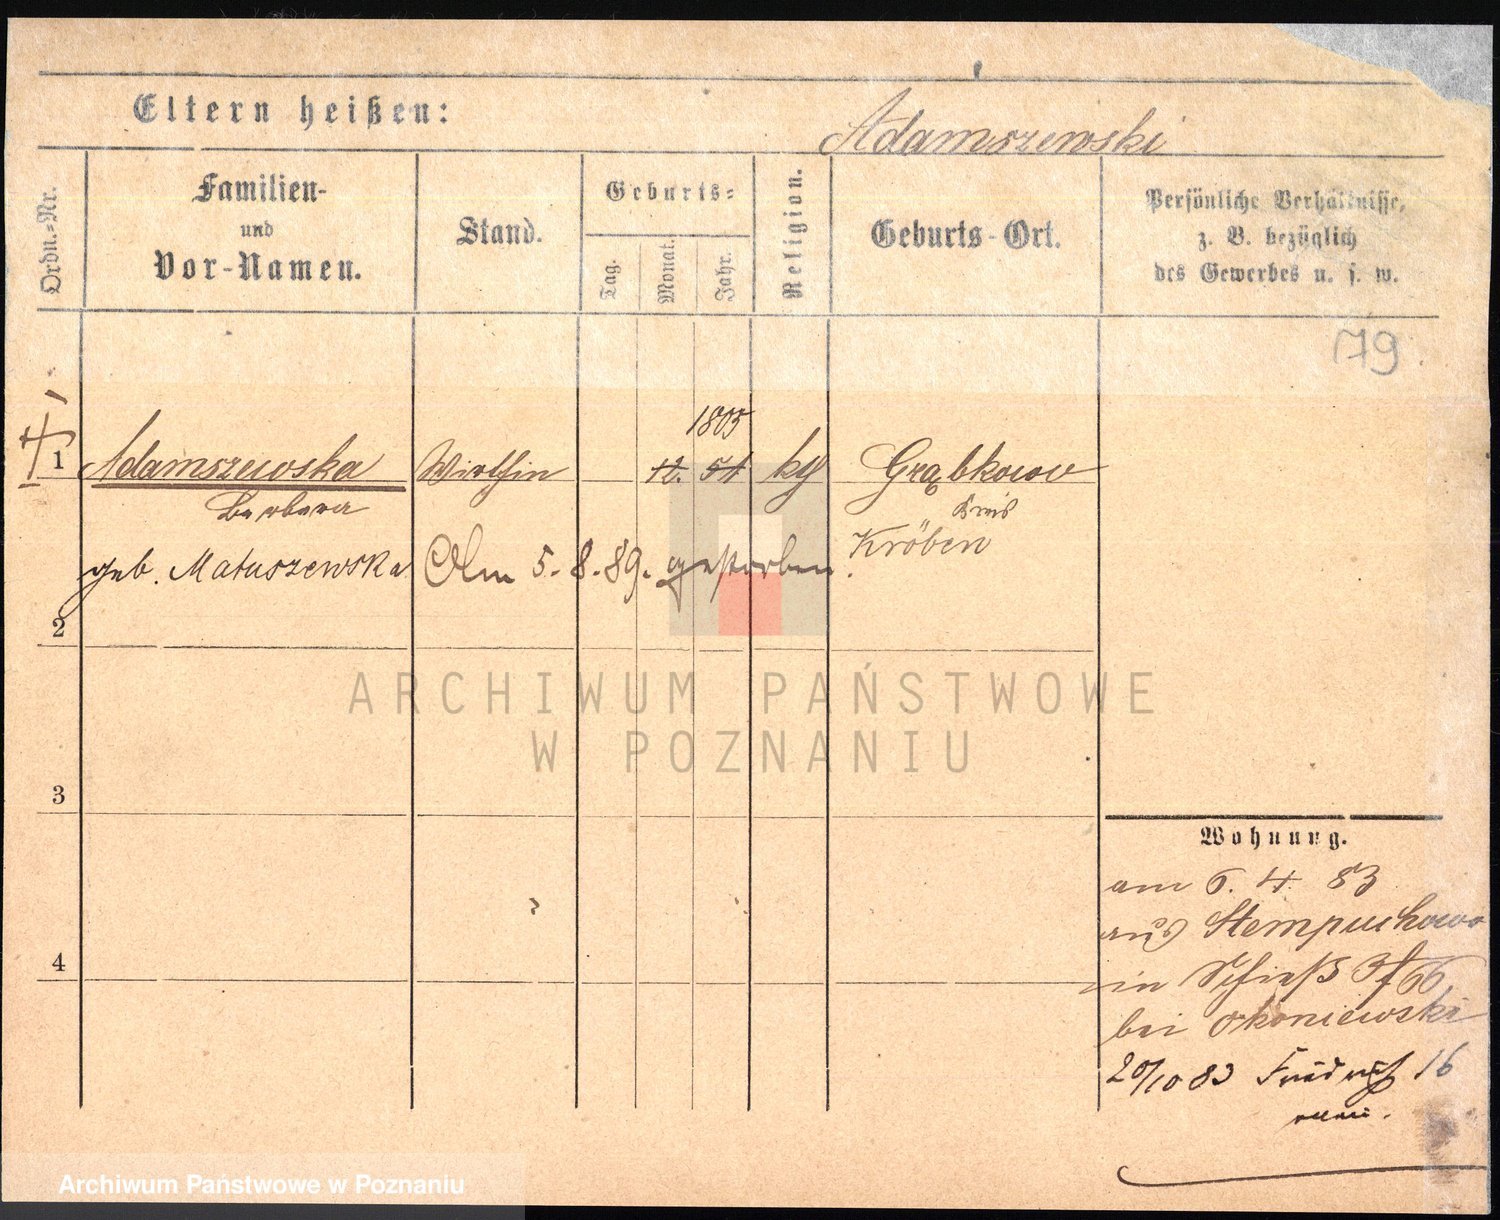 Eltern heißen:
Adamszewski
Ordn.-Nr.
Familien-
und
Vor-Namen.
Stand.
Geburts-
Tag.
Monat.
Jahr.
Religion.
Geburts-Ort.
Persönliche Verhältnisse,
z. B. bezüglich
des Gewerbes u. s. w.
79
1805
1 Adamszewska Wirthin 12. 54 kth Grąbkowo
Barbara Kreis
Kröben
geb. Matuszewska Am 5.8.89. gestorben.
2
ARCHIWUM PAŃSTWOWE
W POZNANIU
3
Wohnung.
am 6. 4. 83
aus Stempuchowo
in Schieß 3/66
bei Okoniewski
4
20/10 83 16
Archiwum Państwowe w Poznaniu